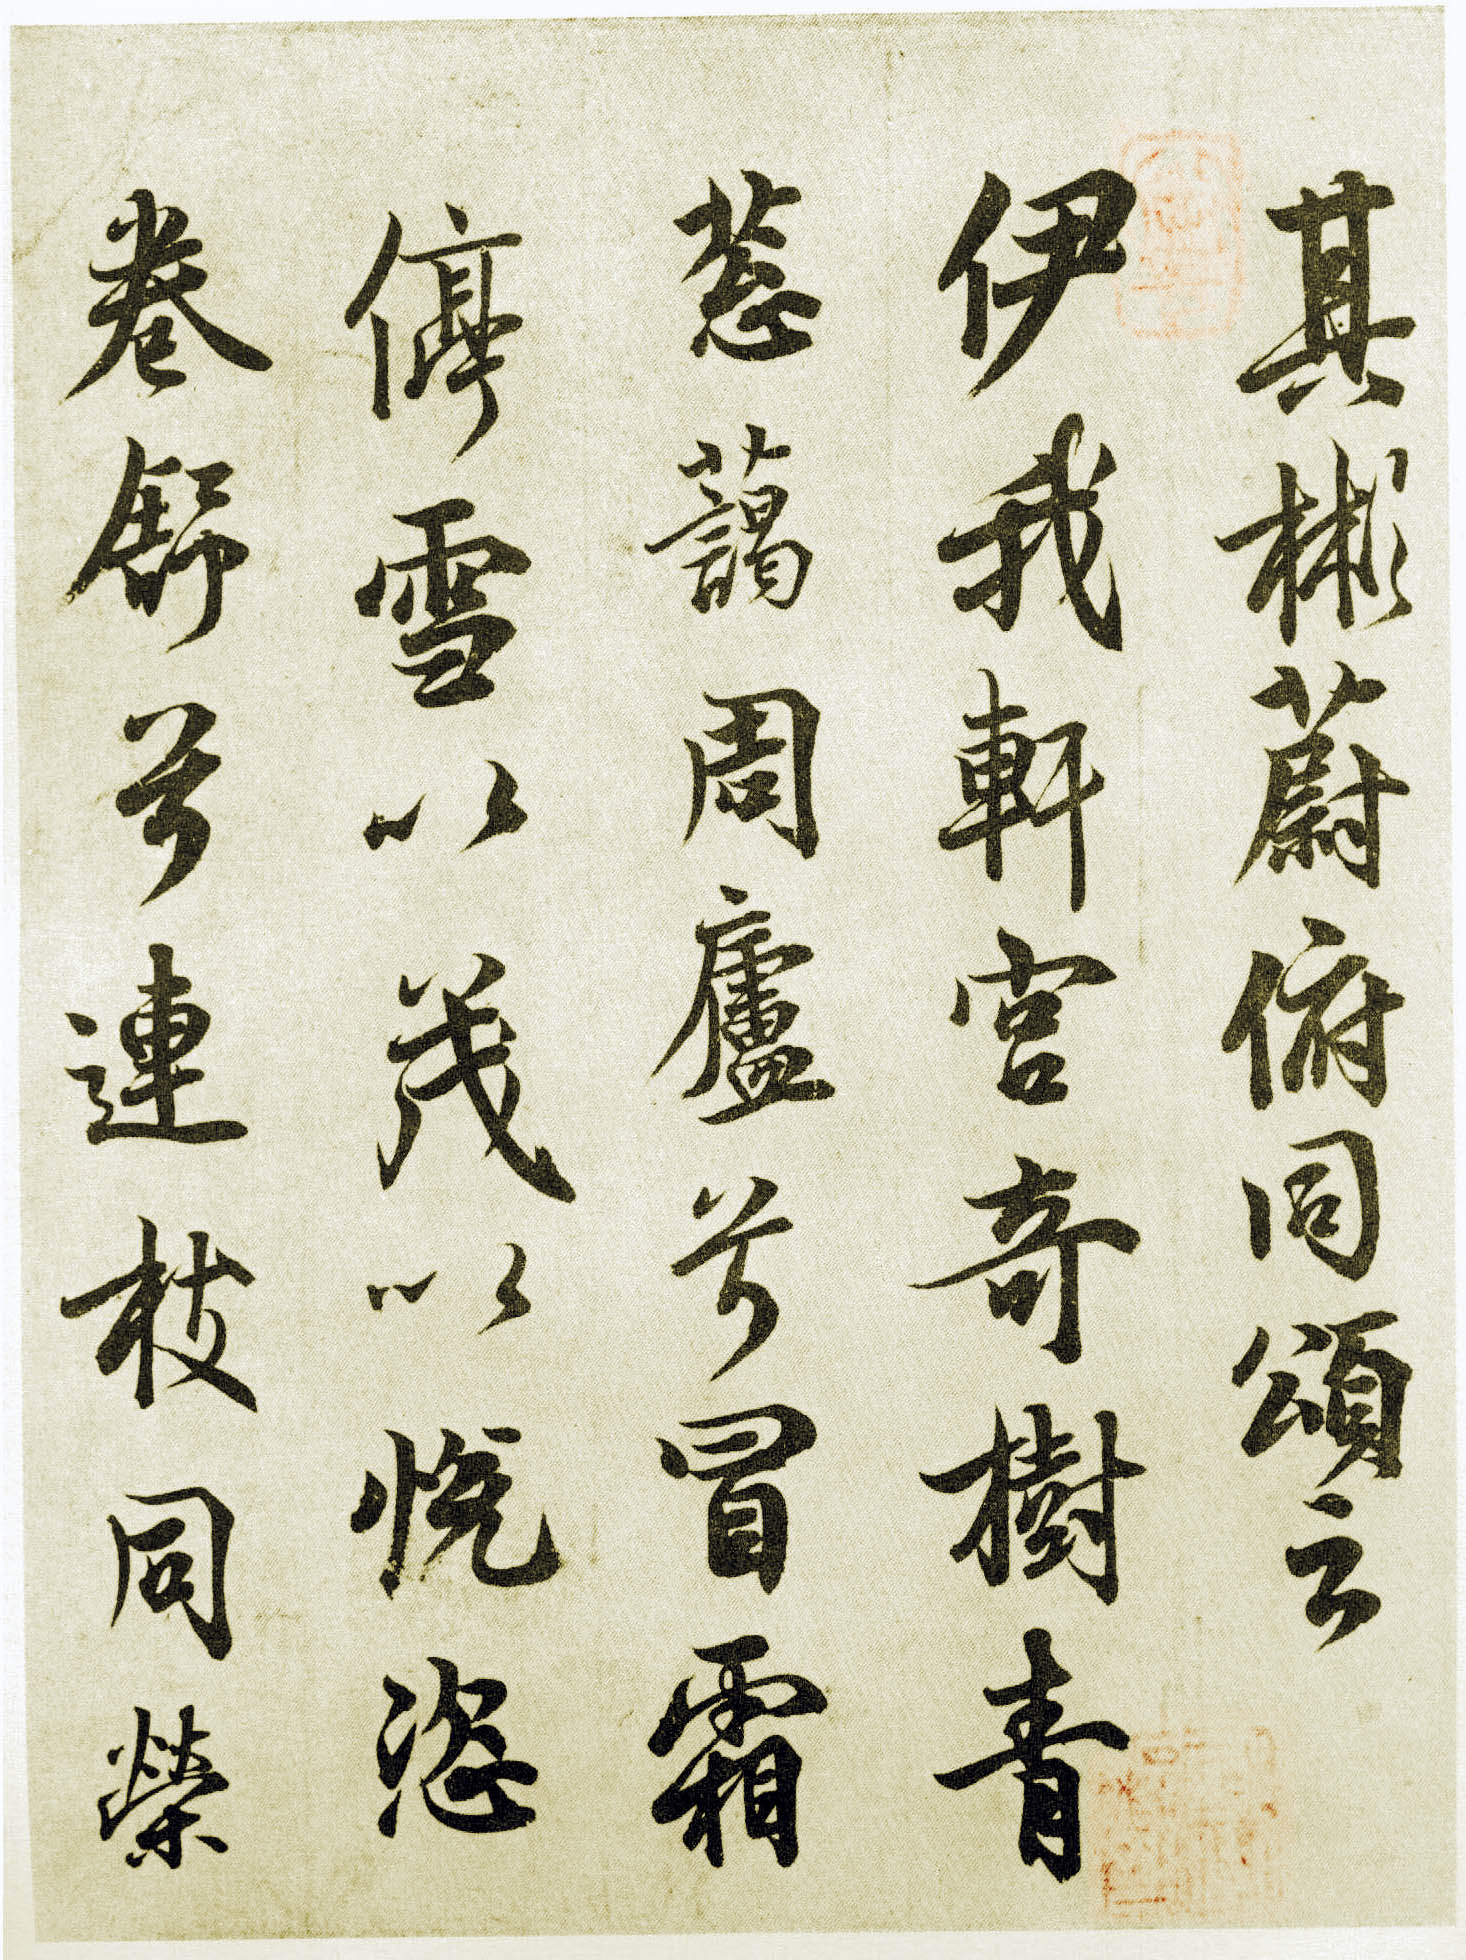 其彬蔚俯同頌云
伊我軒宫奇樹青
葱蔼周廬兮冒霜
停雪以茂以悦恣
卷舒兮連枝同榮